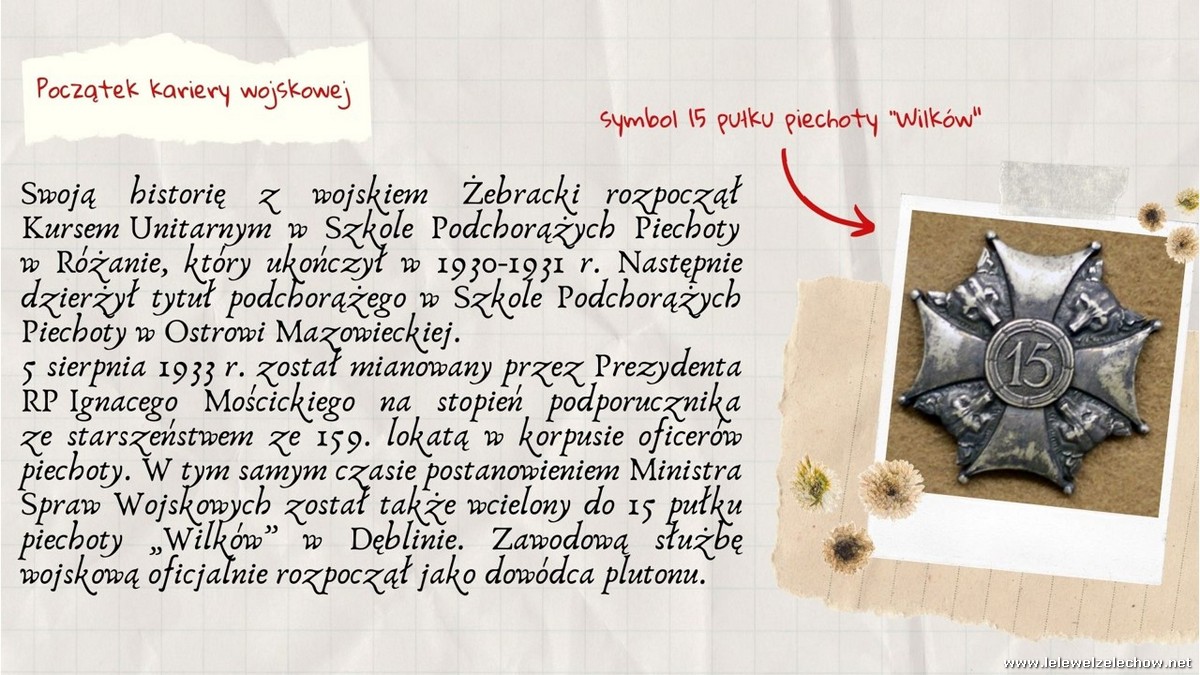 Początek kariery wojskowej
symbol 15 pułku piechoty "Wilków"
Swoją historię z wojskiem Żebracki rozpoczął
Kursem Unitarnym w Szkole Podchorążych Piechoty
w Różanie, który ukończył w 1930-1931 r. Następnie
dzierżył tytuł podchorążego w Szkole Podchorążych
Piechoty w Ostrowi Mazowieckiej.
5 sierpnia 1933 r. został mianowany przez Prezydenta
RP Ignacego Mościckiego na stopień podporucznika
ze starszeństwem ze 159. lokatą w korpusie oficerów
piechoty. W tym samym czasie postanowieniem Ministra
Spraw Wojskowych został także wcielony do 15 pułku
piechoty „Wilków” w Dęblinie. Zawodową służbę
wojskową oficjalnie rozpoczął jako dowódca plutonu.
15
www.lelewelzelechow.net